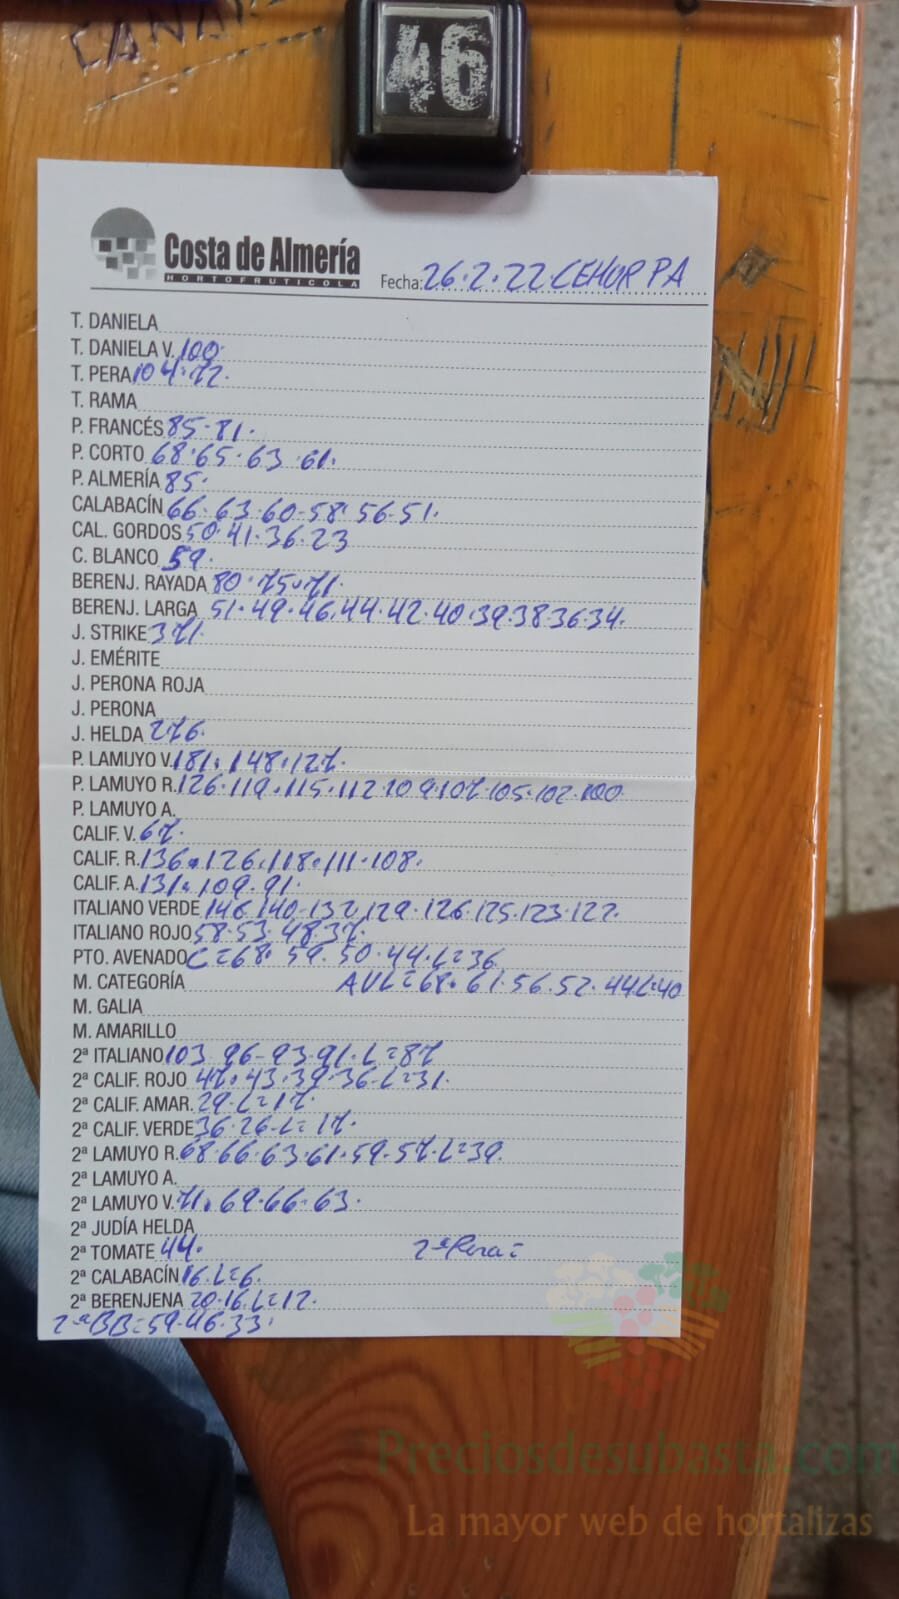 CANA
46
Costa de Almería
HORTOFRUTICOLA
Fecha: 26.2.22 CEHOR PA
T. DANIELA
T. DANIELA V. 100.
T. PERA 104.72.
T. RAMA
P. FRANCÉS 85.81.
P. CORTO 68.65.63.61.
P. ALMERÍA 85.
CALABACÍN 66.63.60-58.56-51.
CAL. GORDOS 50.41.36.23
C. BLANCO 59.
BERENJ. RAYADA 80.75.71.
BERENJ. LARGA 51.49.46.44.42.40.39.38.36.34.
J. STRIKE 371.
J. EMÉRITE
J. PERONA ROJA
J. PERONA
J. HELDA 276.
P. LAMUYO V. 181.148.127.
P. LAMUYO R. 126.119.115.112.109.107.105.102.100
P. LAMUYO A.
CALIF. V. 67.
CALIF. R. 136.126.118.111.108.
CALIF. A. 131.109.91.
ITALIANO VERDE 146.140.132.129.126.125.123.122.
ITALIANO ROJO 58.53.48.37.
PTO. AVENADO C=68.59.50.44.L=36
M. CATEGORÍA AVL=68.61.56.52.44L=40
M. GALIA
M. AMARILLO
2ª ITALIANO 103.96-93.91.L=87
2ª CALIF. ROJO 47.43.39.36-L=31.
2ª CALIF. AMAR. 29.L=17.
2ª CALIF. VERDE 36.26-L=17.
2ª LAMUYO R. 68.66.63.61.59.57.L=39.
2ª LAMUYO A.
2ª LAMUYO V. 71.69.66.63.
2ª JUDÍA HELDA
2ª TOMATE 44. 2ª Pera=
2ª CALABACÍN 16.L=6.
2ª BERENJENA 20.16.L=12.
2ªBB=59.46.33.
Preciosdesubasta.com
La mayor web de hortalizas